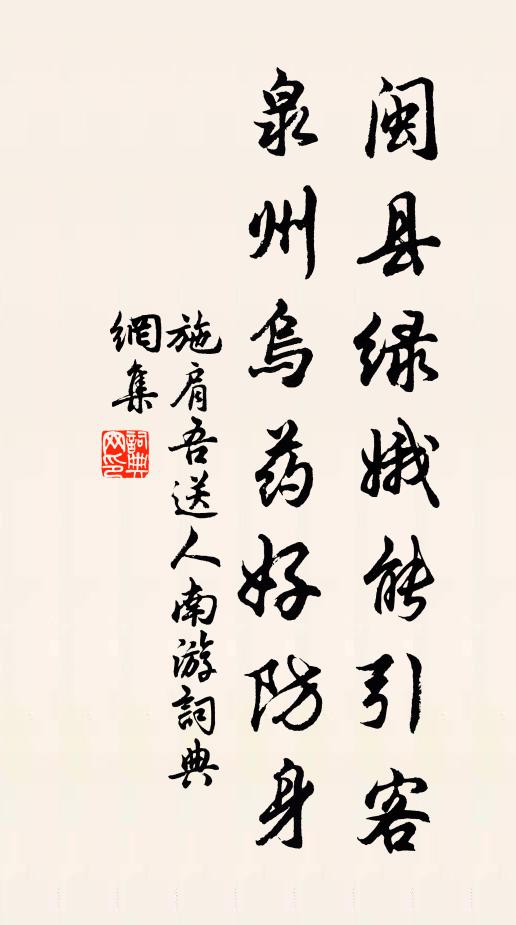 闽县绿娥能引客
泉州乌药好防身
施肩吾送人南游詞典
網集
詞典
网印